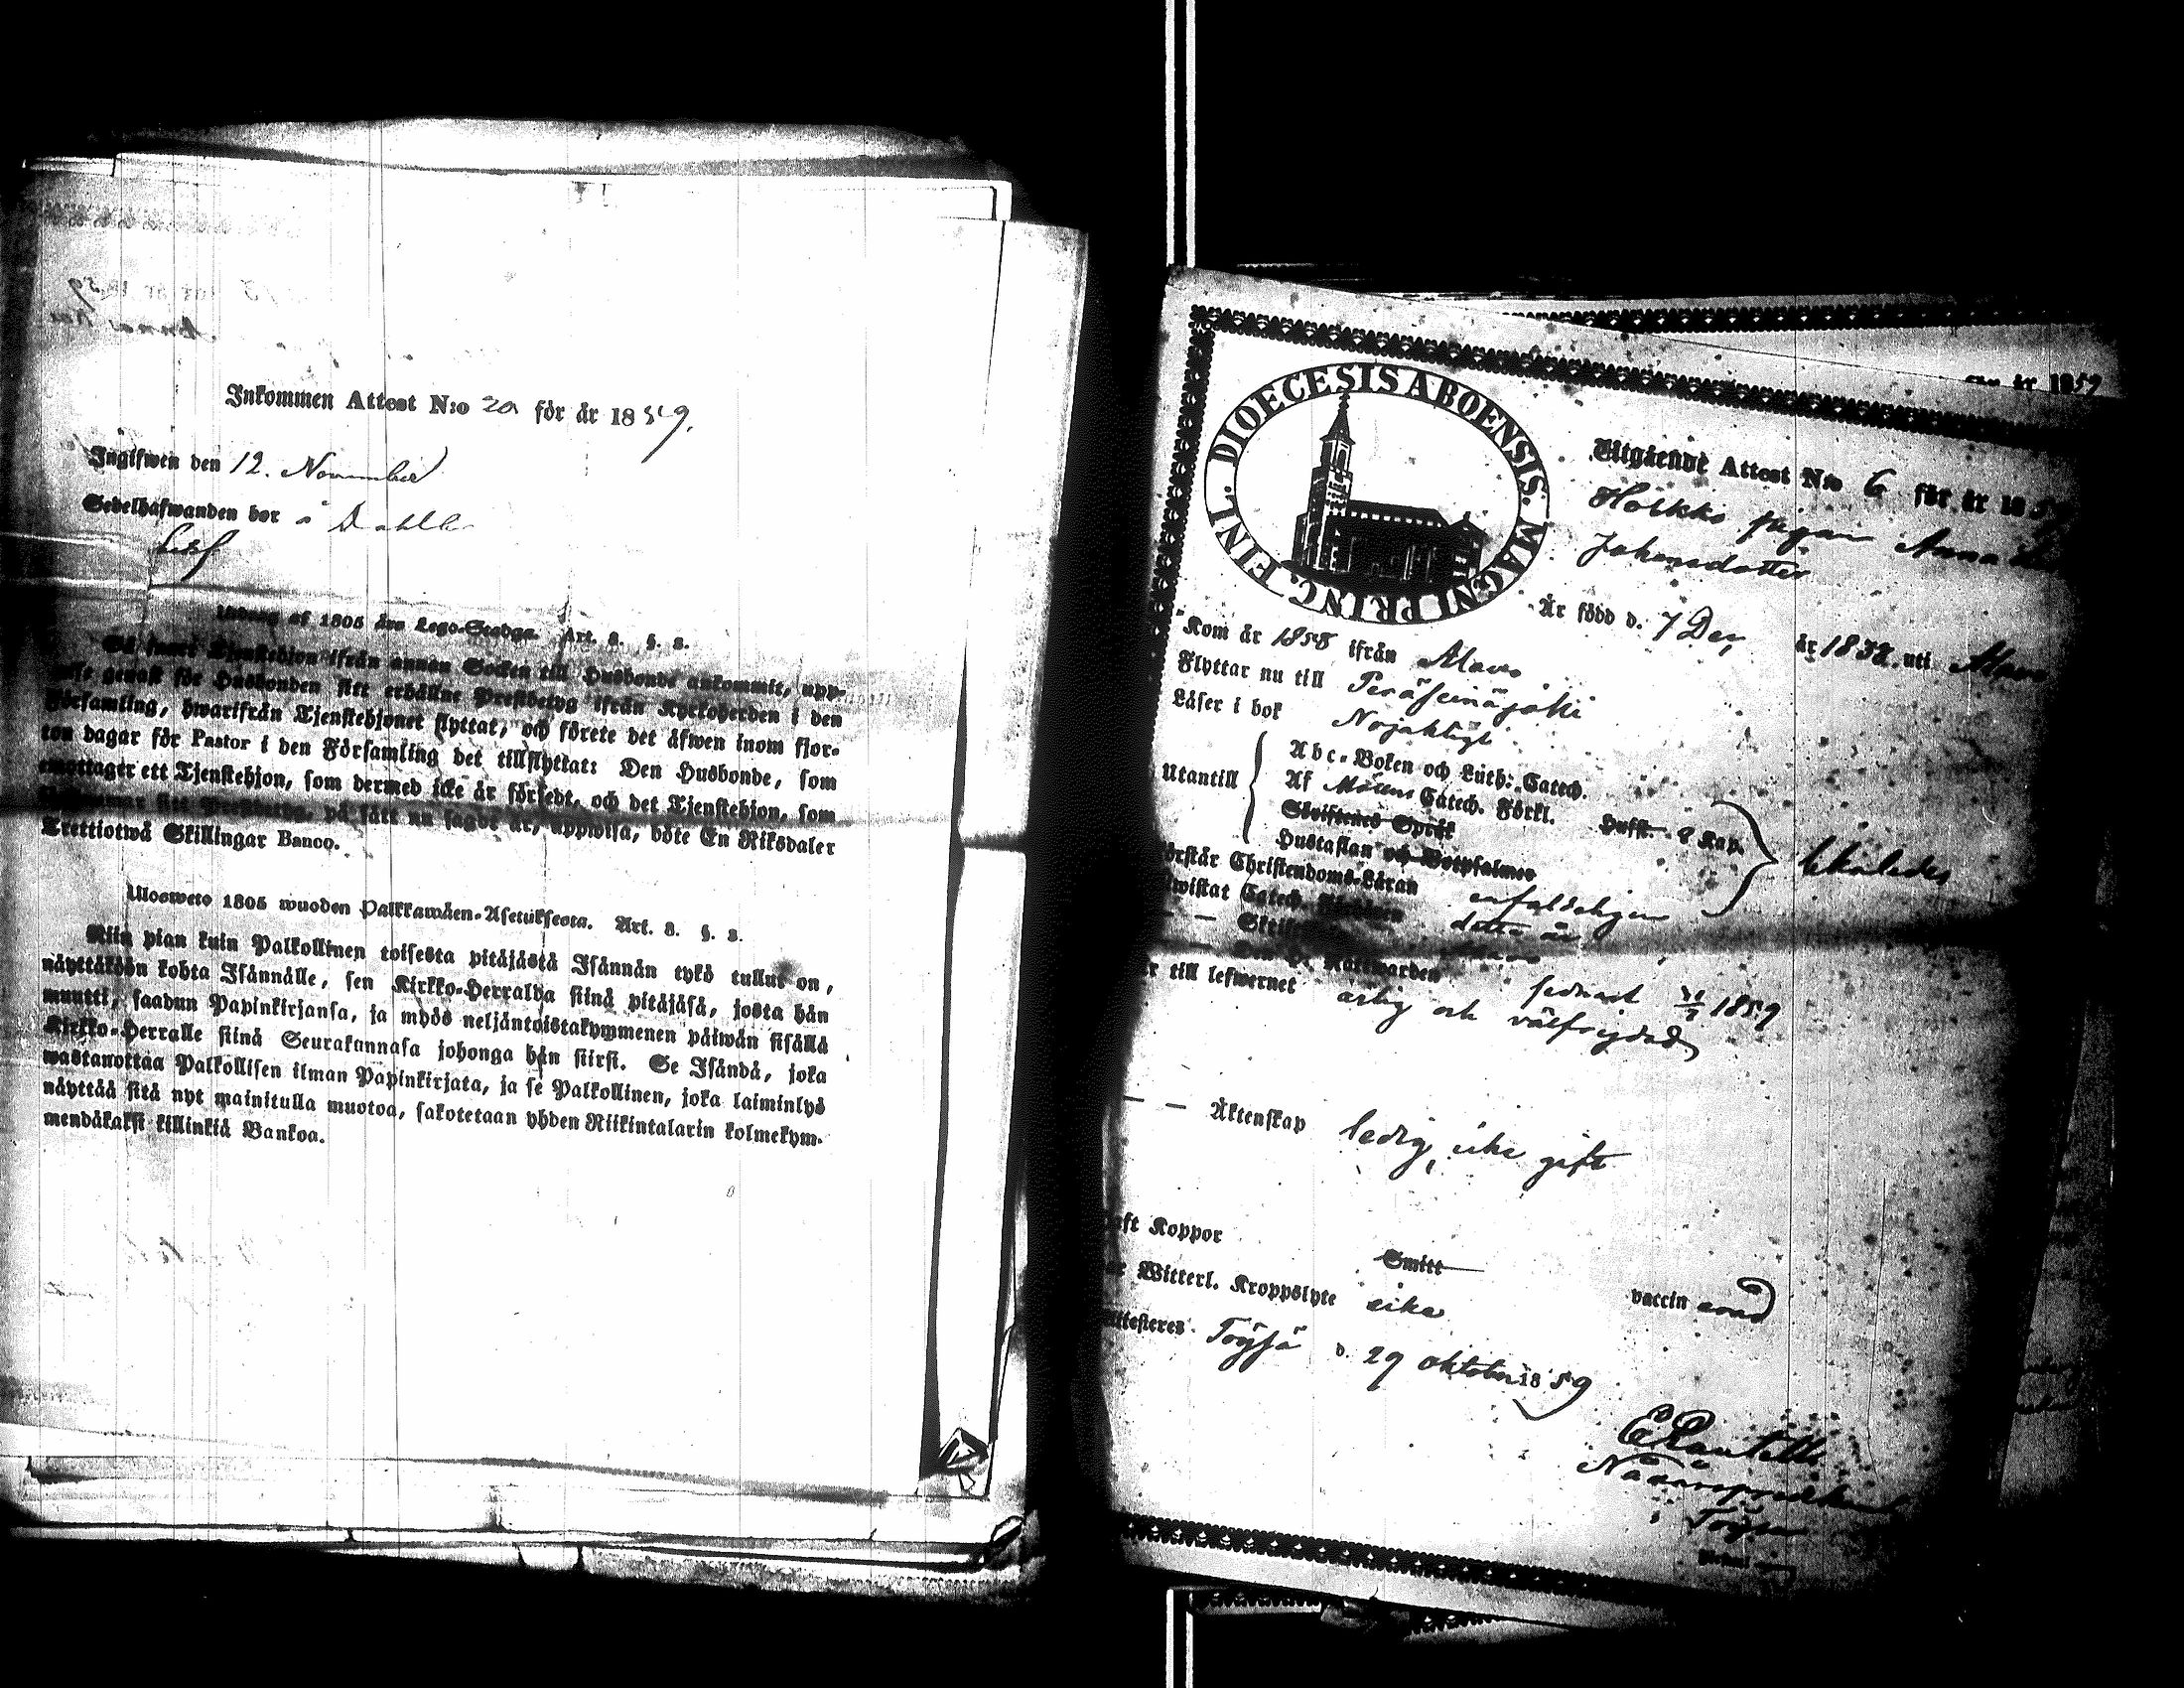 Inkommen Attest N:o 20 för år 1859.
Ingifwen den 12. November
Sedelhafwanden bor å
Utdrag af 1805 års Lego-Stadga. Art. 8. §. 2.
Så snart Tjenstehjon ifrån annan Socken till Husbonde ankommit, upp-
wise genast för Husbonden sitt erhållne Prestbetyg ifrån Kyrkoherden i den
Församling, hwarifrån Tjenstehjonet flyttat, och förete det äfwen inom fjor-
ton dagar för Pastor i den Församling det tillflyttat: Den Husbonde, som
emottager ett Tjenstehjon, som dermed icke är försedt, och det Tjenstehjon, som
sitt Prestbetyg, på sätt nu sagdt är, uppwisa, böte En Riksdaler
Trettiotwå Skillingar Banco.
Ulosweto 1805 wuoden Palkkawäen-Asetuksesta. Art. 8. §. 2.
Niin pian kuin Palkollinen toisesta pitäjästä Isännän tykö tullut on,
näyttäköön kohta Isännälle, sen Kirkko-Herralda siinä pitäjäsä, josta hän
muutti, saadun Papinkirjansa, ja myös neljäntoistakymmenen päiwän sisällä
Kirkko-Herralle siinä Seurakunnasa johonga hän siirsi. Se Isändä, joka
wastanottaa Palkollisen ilman Papinkirjata, ja se Palkollinen, joka laiminlyö
näyttää sitä nyt mainitulla muotoa, sakotetaan yhden Riikintalarin kolmekym-
mendäkaksi killinkiä Bankoa.
för år 1859
DIOECESIS ABOENSIS. MAGNI PRINC. FINL.
Utgående Attest N:o 6 för år 185
pigan Anna
Johansdotter
Är född d. 7 Dec. år 1832. uti Alavo
Kom år 1858 ifrån Alavo
Flyttar nu till Peräseinäjoki
Läser i bok Nöjaktigt
Utantill
Abc-Boken och Luth: Catech.
Af Möllers Catech. Förkl.
Skriftenes Språk
Hustaflan och Botpsalmer
Hufst. 2 Kap.
likaledes
örstår Christendoms-Läran enfaldeligen
wistat Catech. detta år
Den H. Nattwarden senast 1859
r till lefwernet ärlig och välfrejdad
Äktenskap ledig, icke gift
aft Koppor
Smitt
vaccin
ar Witterl. Kroppslyte icke
ttesteres Töysä d. 29 oktober 1859
Töysä